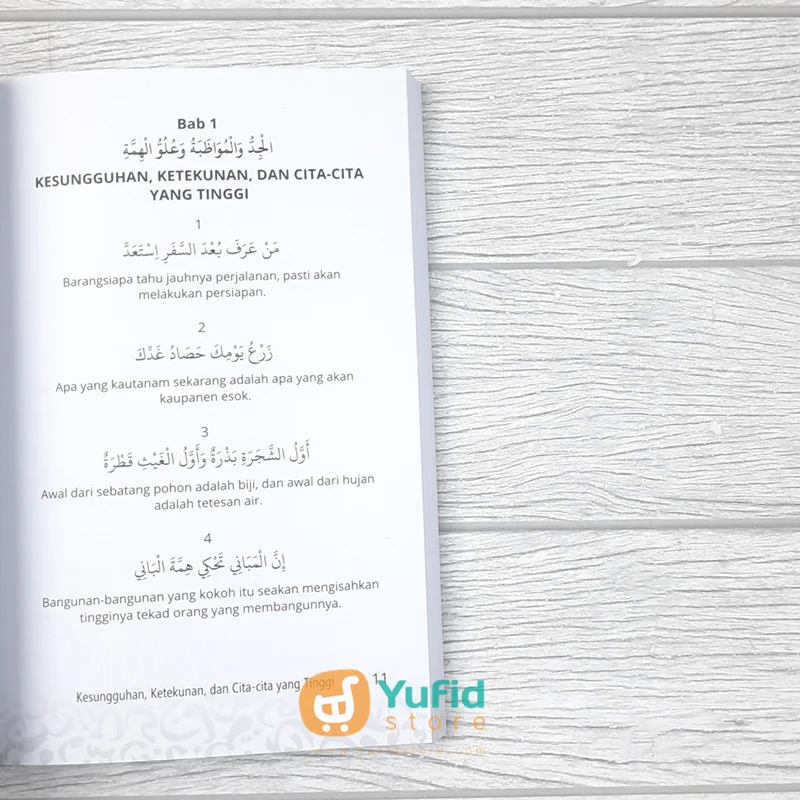 Bab 1
الْجِدُّ وَالْمُوَاظَبَةُ وَعُلُوُّ الْهِمَّةِ
KESUNGGUHAN, KETEKUNAN, DAN CITA-CITA
YANG TINGGI
1
مَنْ عَرَفَ بُعْدَ السَّفَرِ اِسْتَعَدَّ
Barangsiapa tahu jauhnya perjalanan, pasti akan
melakukan persiapan.
2
زَرْعُ يَوْمِكَ حَصَادُ غَدِكَ
Apa yang kautanam sekarang adalah apa yang akan
kaupanen esok.
3
أَوَّلُ الشَّجَرَةِ بَذْرَةٌ وَأَوَّلُ الْغَيْثِ قَطْرَةٌ
Awal dari sebatang pohon adalah biji, dan awal dari hujan
adalah tetesan air.
4
إِنَّ الْمَبَانِي تَحْكِي هِمَّةَ الْبَانِي
Bangunan-bangunan yang kokoh itu seakan mengisahkan
tingginya tekad orang yang membangunnya.
Kesungguhan, Ketekunan, dan Cita-cita yang Tinggi 11
Yufid
store